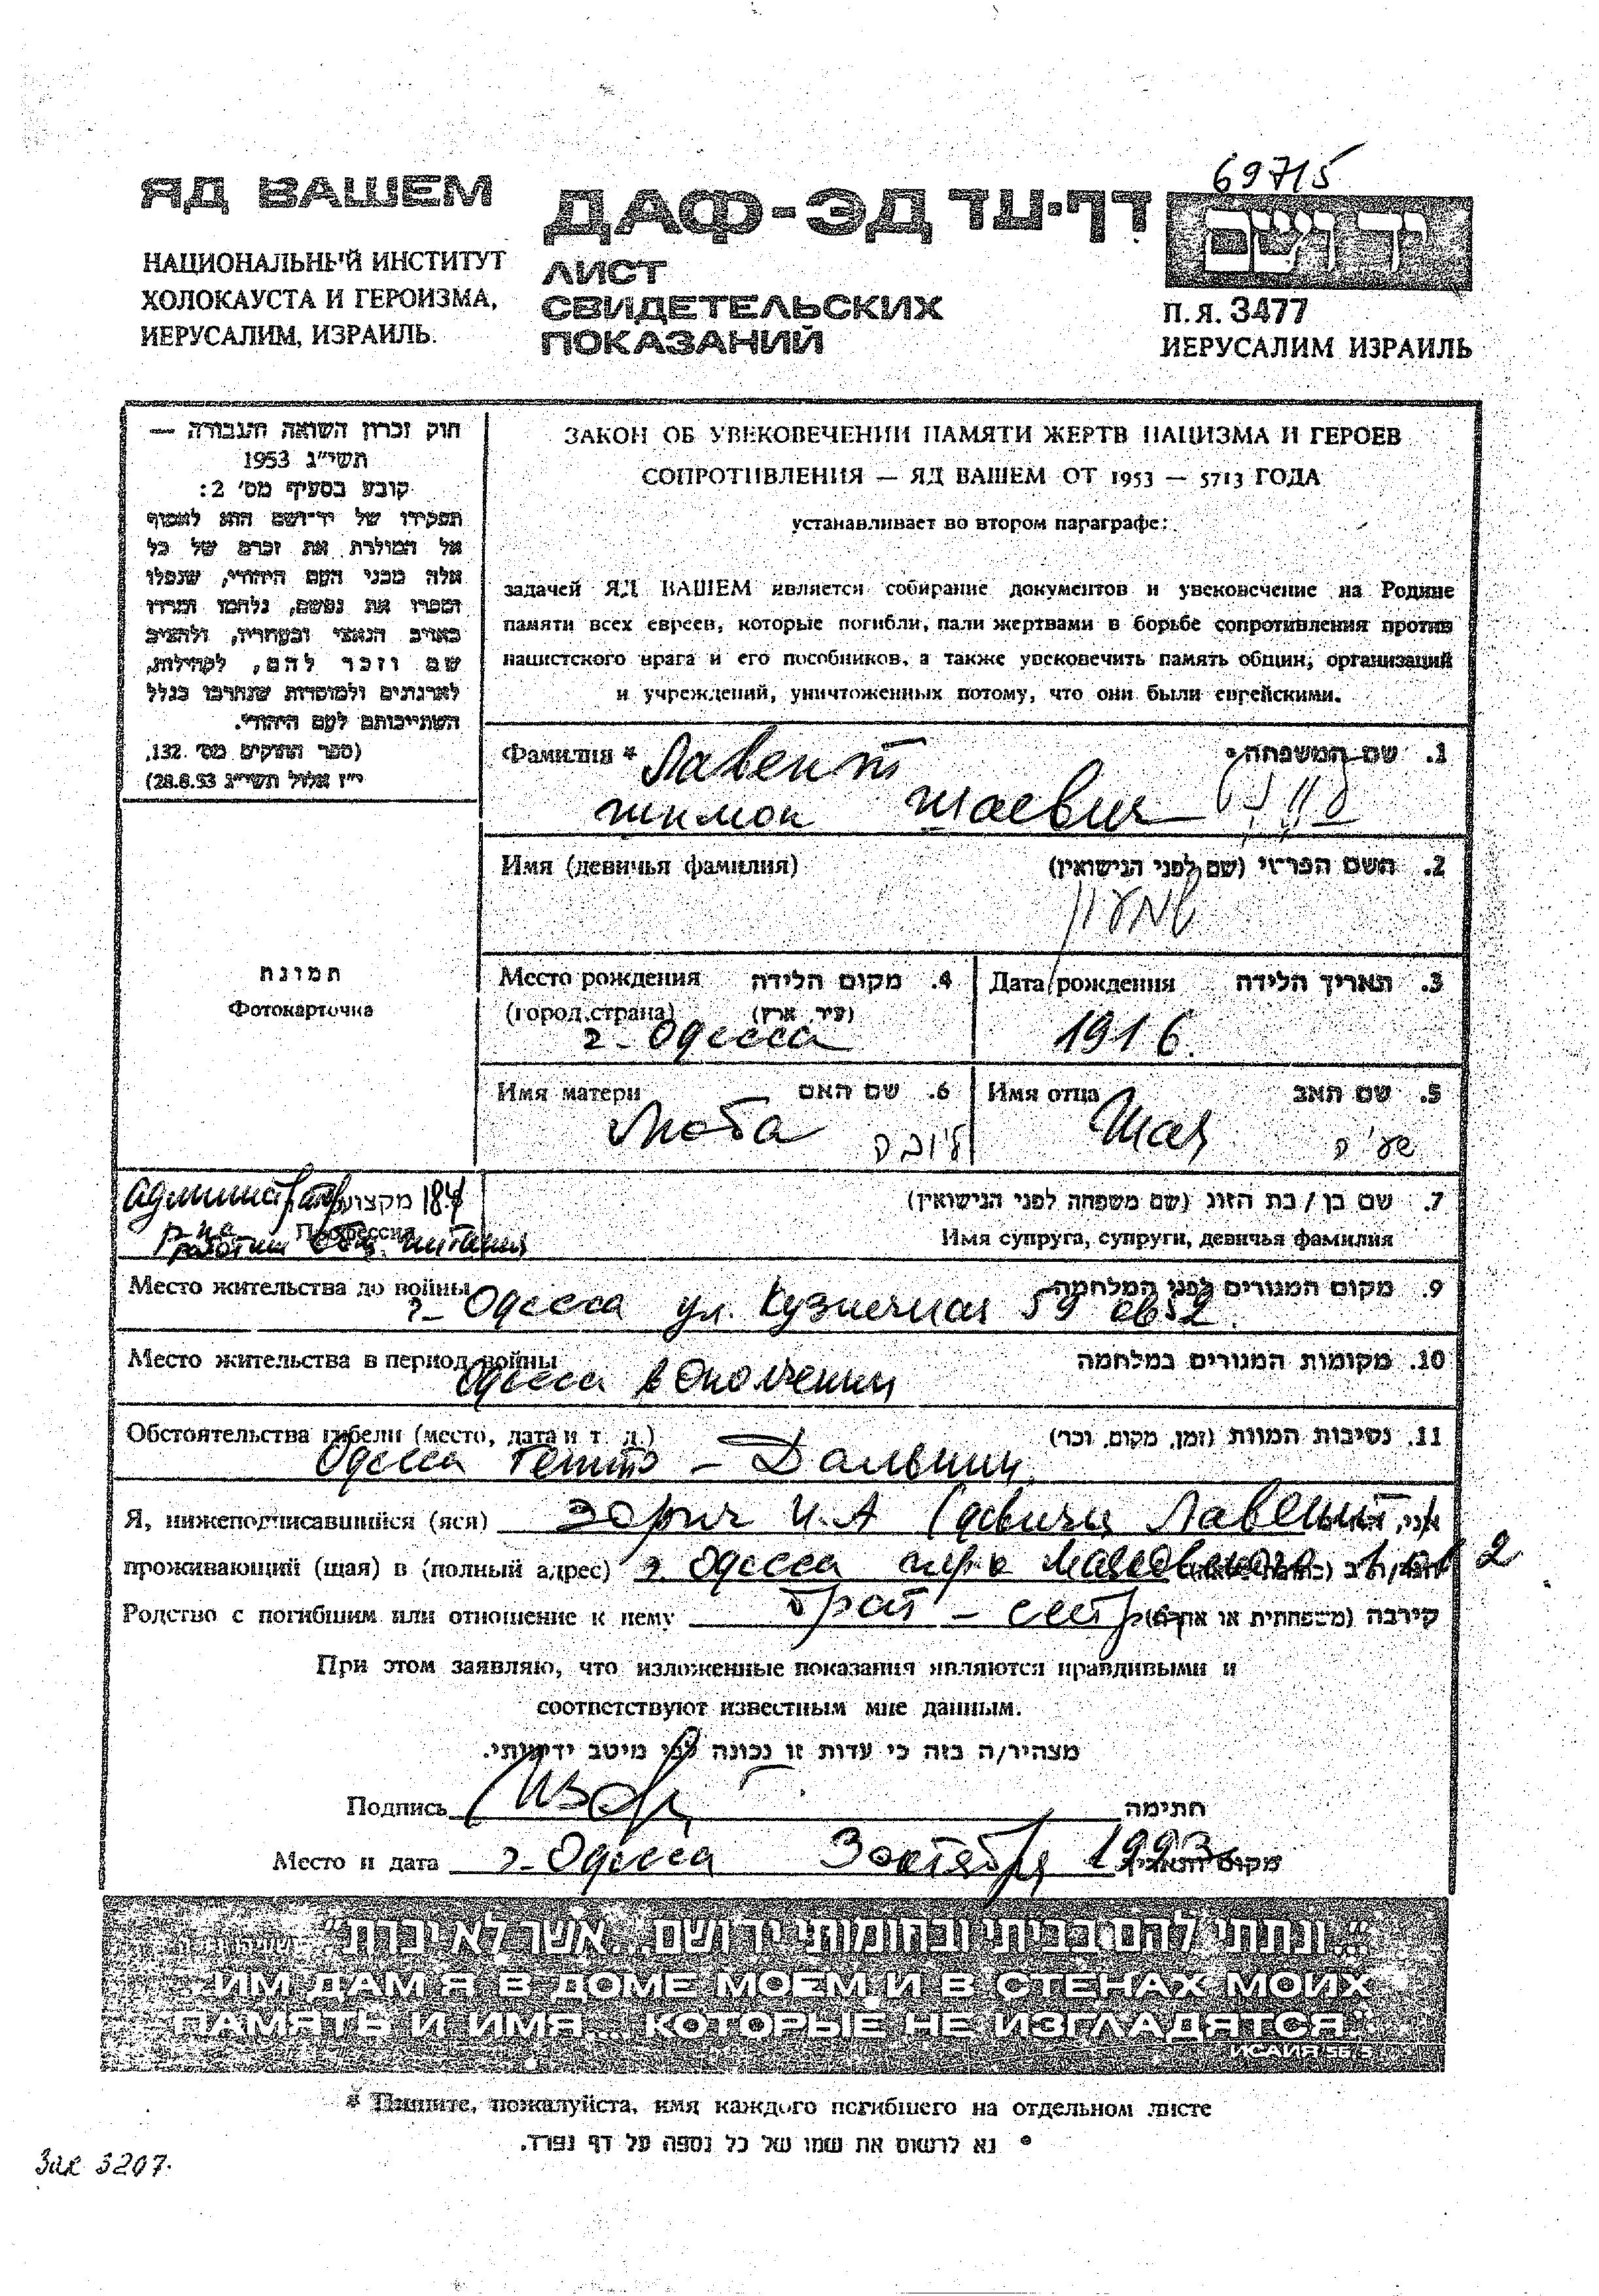 69715
ЯД ВАШЕМ
НАЦИОНАЛЬНЫЙ ИНСТИТУТ
ХОЛОКАУСТА И ГЕРОИЗМА,
ИЕРУСАЛИМ, ИЗРАИЛЬ.
ДАФ-ЭД דף-עד
ЛИСТ
СВИДЕТЕЛЬСКИХ
ПОКАЗАНИЙ
יד ושם
П.Я. 3477
ИЕРУСАЛИМ ИЗРАИЛЬ
חוק זכרון השואה והגבורה —
תשי"ג 1953
קובע בסעיף מס' 2:
תפקידו של יד-ושם הוא לאסוף
אל המולדת את זכרם של כל
אלה מבני העם היהודי, שנפלו
ומסרו את נפשם, נלחמו ומרדו
באויב הנאצי ובעוזריו, ולהציב
שם וזכר להם, לקהילות,
לארגונים ולמוסדות שנחרבו בגלל
השתייכותם לעם היהודי.
(ספר החוקים מס' 132,
י"ז אלול תשי"ג 28.8.53)
ЗАКОН ОБ УВЕКОВЕЧЕНИИ ПАМЯТИ ЖЕРТВ НАЦИЗМА И ГЕРОЕВ
СОПРОТИВЛЕНИЯ — ЯД ВАШЕМ ОТ 1953 — 5713 ГОДА
устанавливает во втором параграфе:
задачей ЯД ВАШЕМ является собирание документов и увековечение на Родине
памяти всех евреев, которые погибли, пали жертвами в борьбе сопротивления против
нацистского врага и его пособников, а также увековечить память общин, организаций
и учреждений, уничтоженных потому, что они были еврейскими.
Фамилия * Лавент 1. שם המשפחה*
шимон шаевич
Имя (девичья фамилия) 2. השם הפרטי (שם לפני הנישואין)
שמעון
תמונה
Фотокарточка
Место рождения 4. מקום הלידה
(город, страна) (עיר, ארץ)
г. Одесса
Дата рождения 3. תאריך הלידה
1916
Имя матери 6. שם האם
Люба ליובה
Имя отца 5. שם האב
Шая שעיה
8. מקצוע
Профессия
работник общ. питания
7. שם בן / בת הזוג (שם משפחה לפני הנישואין)
Имя супруга, супруги, девичья фамилия
Место жительства до войны 9. מקום המגורים לפני המלחמה
г. Одесса ул. Кузнечная 59 кв 52
Место жительства в период войны 10. מקומות המגורים במלחמה
Одесса в ополчении
Обстоятельства гибели (место, дата и т. д.) 11. נסיבות המוות (זמן, מקום, וכו')
Одесса гетто - Дальник
Я, нижеподписавшийся (яся) Зорич И.А (девичья Лавент) אני, הח"מ
проживающий (щая) в (полный адрес) г. Одесса 2
Родство с погибшим или отношение к нему брат - сестра קירבה (משפחתית או אחרת)
При этом заявляю, что изложенные показания являются правдивыми и
соответствуют известным мне данным.
מצהיר/ה בזה כי עדות זו נכונה לפי מיטב ידיעותי.
Подпись חתימה
Место и дата г. Одесса 3 октября 1993 מקום ותאריך
"...ונתתי להם בביתי ובחומותי יד ושם... אשר לא יכרת"
...ИМ ДАМ Я В ДОМЕ МОЕМ И В СТЕНАХ МОИХ
ПАМЯТЬ И ИМЯ... КОТОРЫЕ НЕ ИЗГЛАДЯТСЯ."
ИСАИЯ 56, 5
* Пишите, пожалуйста, имя каждого погибшего на отдельном листе
* נא לרשום את שמו של כל נספה על דף נפרד.
Зак 3207.